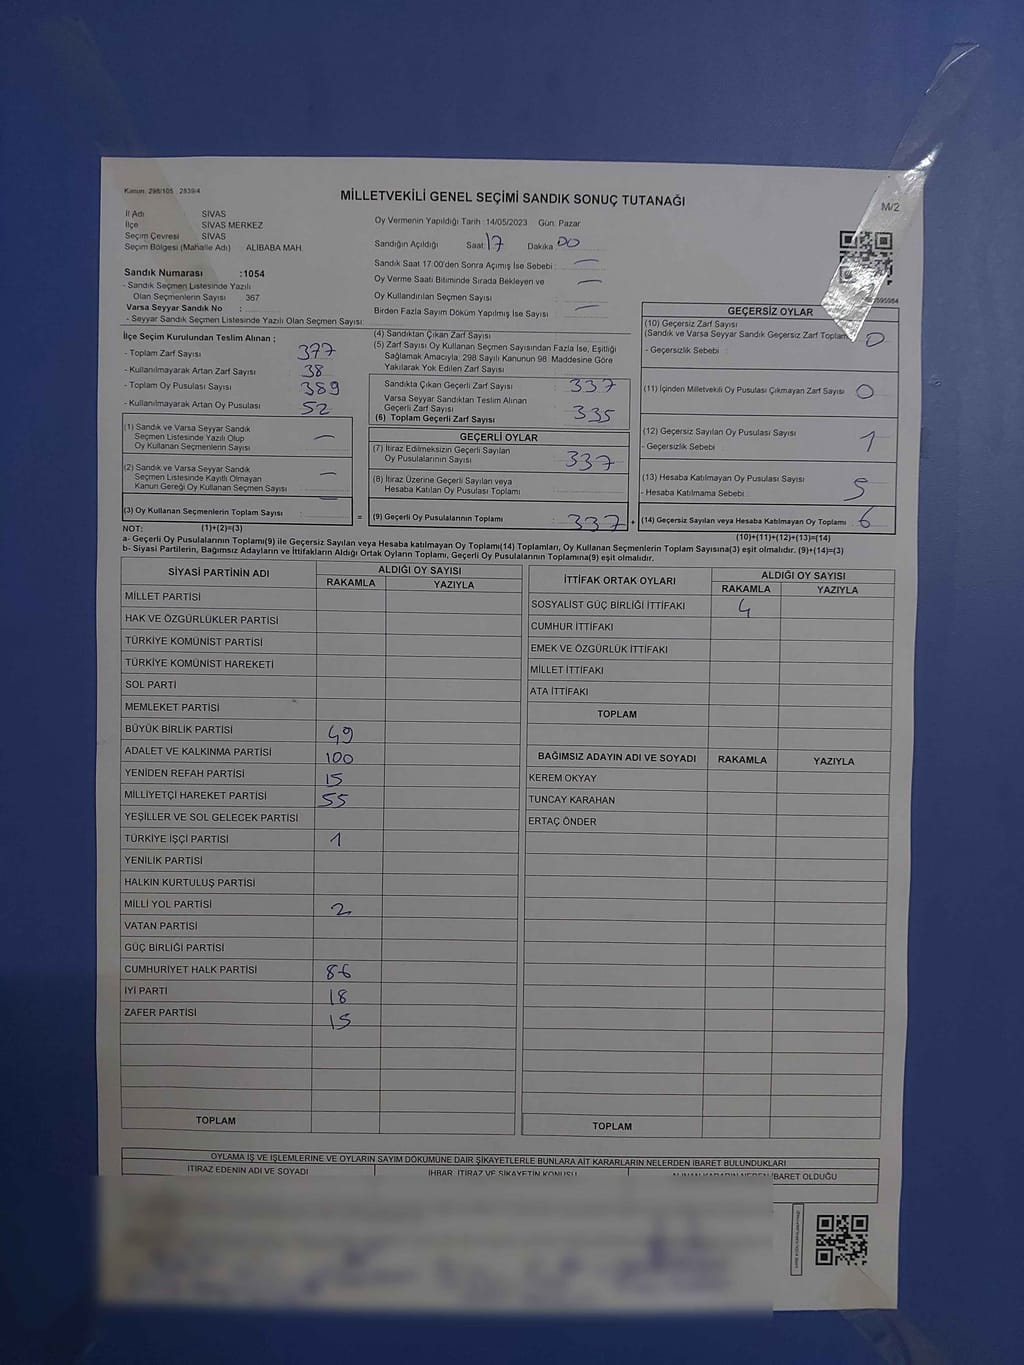 Kanun: 298/105 2839/4
MİLLETVEKİLİ GENEL SEÇİMİ SANDIK SONUÇ TUTANAĞI
M/2
İl Adı SİVAS
İlçe SİVAS MERKEZ
Seçim Çevresi SİVAS
Seçim Bölgesi (Mahalle Adı) ALIBABA MAH.
Sandık Numarası :1054
- Sandık Seçmen Listesinde Yazılı
Olan Seçmenlerin Sayısı 367
Varsa Seyyar Sandık No :
- Seyyar Sandık Seçmen Listesinde Yazılı Olan Seçmen Sayısı:
Oy Vermenin Yapıldığı Tarih :14/05/2023 Gün: Pazar
Sandığın Açıldığı Saat: 17 Dakika: 00
Sandık Saat 17:00'den Sonra Açımış İse Sebebi : —
Oy Verme Saati Bitiminde Sırada Bekleyen ve —
Oy Kullandırılan Seçmen Sayısı
Birden Fazla Sayım Döküm Yapılmış İse Sayısı : —
İlçe Seçim Kurulundan Teslim Alınan ;
- Toplam Zarf Sayısı 377
- Kullanılmayarak Artan Zarf Sayısı 38
- Toplam Oy Pusulası Sayısı 389
- Kullanılmayarak Artan Oy Pusulası 52
(1) Sandık ve Varsa Seyyar Sandık
Seçmen Listesinde Yazılı Olup
Oy Kullanan Seçmenlerin Sayısı : —
(2) Sandık ve Varsa Seyyar Sandık
Seçmen Listesinde Kayıtlı Olmayan
Kanun Gereği Oy Kullanan Seçmen Sayısı : —
(3) Oy Kullanan Seçmenlerin Toplam Sayısı : —
(1)+(2)=(3)
(4) Sandıktan Çıkan Zarf Sayısı
(5) Zarf Sayısı Oy Kullanan Seçmen Sayısından Fazla İse, Eşitliği
Sağlamak Amacıyla; 298 Sayılı Kanunun 98. Maddesine Göre
Yakılarak Yok Edilen Zarf Sayısı
Sandıkta Çıkan Geçerli Zarf Sayısı : 337
Varsa Seyyar Sandıktan Teslim Alınan
Geçerli Zarf Sayısı : 335
(6) Toplam Geçerli Zarf Sayısı
GEÇERLİ OYLAR
(7) İtiraz Edilmeksizin Geçerli Sayılan
Oy Pusulalarının Sayısı : 337
(8) İtiraz Üzerine Geçerli Sayılan veya
Hesaba Katılan Oy Pusulası Toplamı :
= (9) Geçerli Oy Pusulalarının Toplamı : 337 +
GEÇERSİZ OYLAR
(10) Geçersiz Zarf Sayısı
(Sandık ve Varsa Seyyar Sandık Geçersiz Zarf Toplamı 0
- Geçersizlik Sebebi :
(11) İçinden Milletvekili Oy Pusulası Çıkmayan Zarf Sayısı 0
(12) Geçersiz Sayılan Oy Pusulası Sayısı 1
- Geçersizlik Sebebi
(13) Hesaba Katılmayan Oy Pusulası Sayısı 5
- Hesaba Katılmama Sebebi :
(14) Geçersiz Sayılan veya Hesaba Katılmayan Oy Toplamı : 6
(10)+(11)+(12)+(13)=(14)
NOT:
a- Geçerli Oy Pusulalarının Toplamı(9) ile Geçersiz Sayılan veya Hesaba katılmayan Oy Toplamı(14) Toplamları, Oy Kullanan Seçmenlerin Toplam Sayısına(3) eşit olmalıdır. (9)+(14)=(3)
b- Siyasi Partilerin, Bağımsız Adayların ve İttifakların Aldığı Ortak Oyların Toplamı, Geçerli Oy Pusulalarının Toplamına(9) eşit olmalıdır.
SİYASİ PARTİNİN ADI ALDIĞI OY SAYISI
RAKAMLA YAZIYLA
MİLLET PARTİSİ
HAK VE ÖZGÜRLÜKLER PARTİSİ
TÜRKİYE KOMÜNİST PARTİSİ
TÜRKİYE KOMÜNİST HAREKETİ
SOL PARTİ
MEMLEKET PARTİSİ
BÜYÜK BİRLİK PARTİSİ 49
ADALET VE KALKINMA PARTİSİ 100
YENİDEN REFAH PARTİSİ 15
MİLLİYETÇİ HAREKET PARTİSİ 55
YEŞİLLER VE SOL GELECEK PARTİSİ
TÜRKİYE İŞÇİ PARTİSİ 1
YENİLİK PARTİSİ
HALKIN KURTULUŞ PARTİSİ
MİLLİ YOL PARTİSİ 2
VATAN PARTİSİ
GÜÇ BİRLİĞİ PARTİSİ
CUMHURİYET HALK PARTİSİ 86
İYİ PARTİ 18
ZAFER PARTİSİ 15
TOPLAM
İTTİFAK ORTAK OYLARI ALDIĞI OY SAYISI
RAKAMLA YAZIYLA
SOSYALİST GÜÇ BİRLİĞİ İTTİFAKI 4
CUMHUR İTTİFAKI
EMEK VE ÖZGÜRLÜK İTTİFAKI
MİLLET İTTİFAKI
ATA İTTİFAKI
TOPLAM
BAĞIMSIZ ADAYIN ADI VE SOYADI RAKAMLA YAZIYLA
KEREM OKYAY
TUNCAY KARAHAN
ERTAÇ ÖNDER
TOPLAM
OYLAMA İŞ VE İŞLEMLERİNE VE OYLARIN SAYIM DÖKÜMÜNE DAİR ŞİKAYETLERLE BUNLARA AİT KARARLARIN NELERDEN İBARET BULUNDUKLARI
İTİRAZ EDENİN ADI VE SOYADI İHBAR, İTİRAZ VE ŞİKAYETİN KONUSU ALINAN KARARIN NEDEN İBARET OLDUĞU